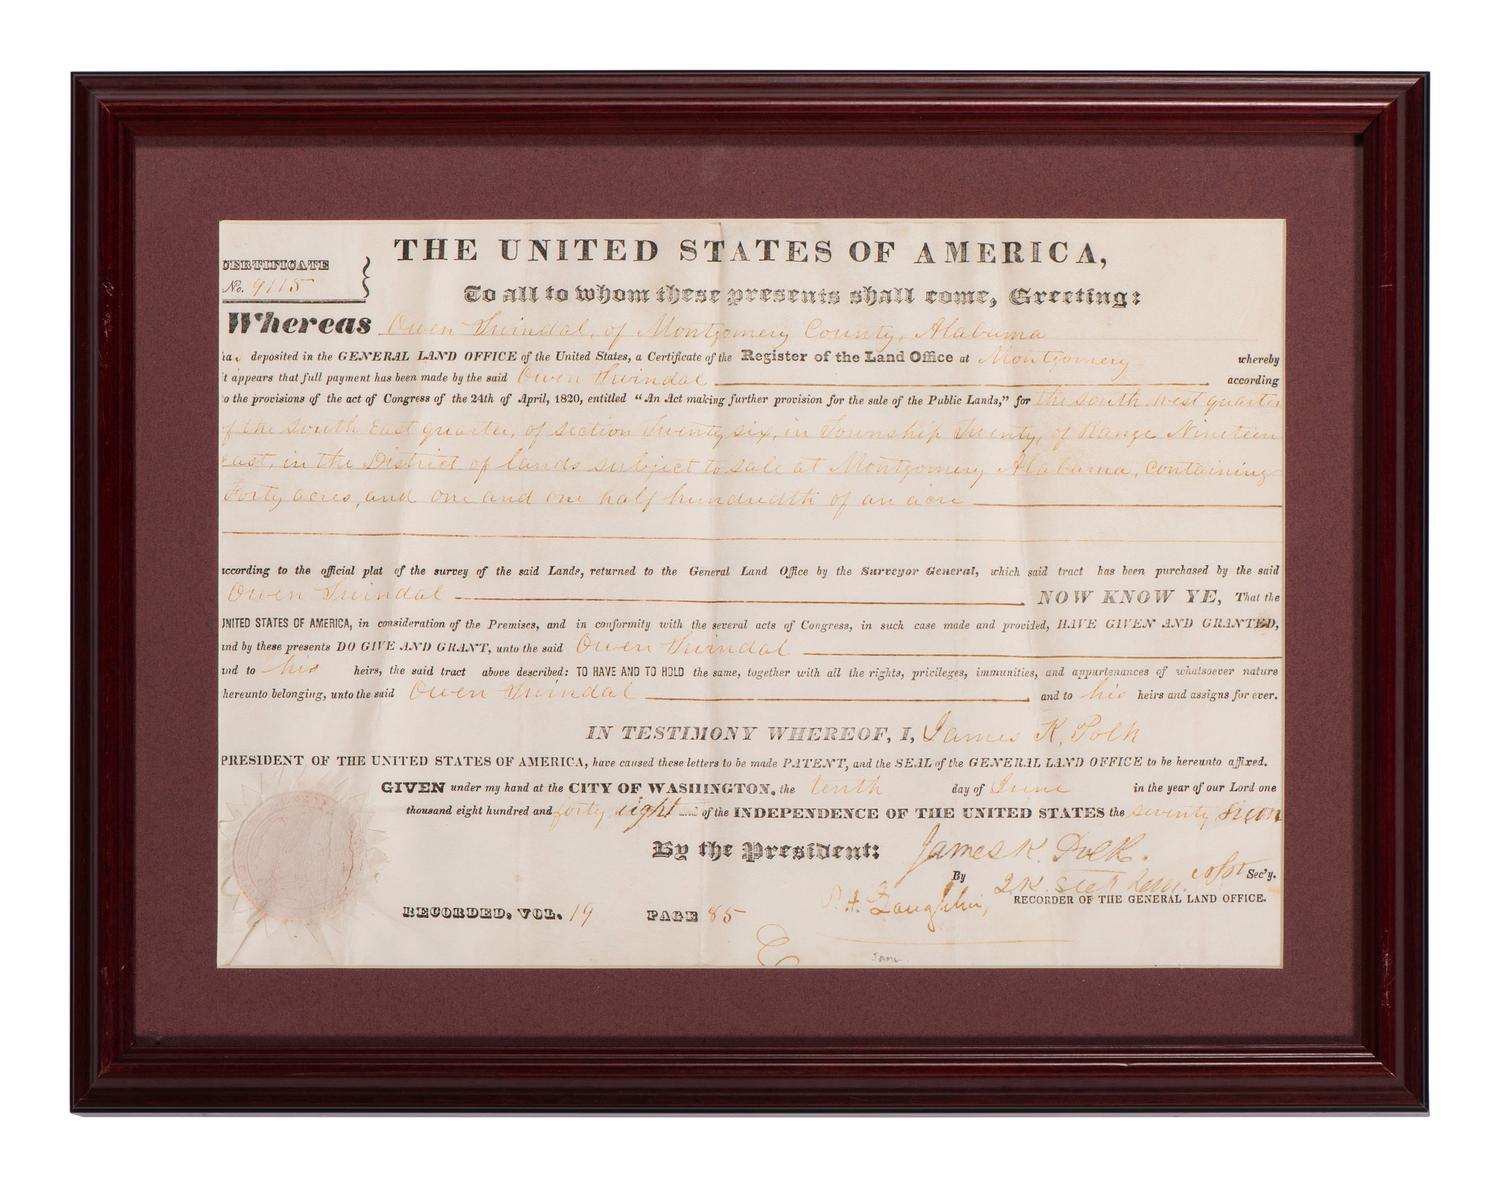 THE UNITED STATES OF AMERICA,
CERTIFICATE
No. 9115
To all to whom these presents shall come, Greeting:
Whereas Owen Swindal, of Montgomery County, Alabama
ha s deposited in the GENERAL LAND OFFICE of the United States, a Certificate of the Register of the Land Office at Montgomery whereby
t appears that full payment has been made by the said Owen Swindal according
o the provisions of the act of Congress of the 24th of April, 1820, entitled “An Act making further provision for the sale of the Public Lands,” for the South West quarter
of the South East quarter, of section Twenty six, in Township Twenty, of Range Nineteen
East, in the District of lands subject to sale at Montgomery Alabama, containing
Forty acres, and one and one half hundredth of an acre
according to the official plat of the survey of the said Lands, returned to the General Land Office by the Surveyor General, which said tract has been purchased by the said
Owen Swindal NOW KNOW YE, That the
UNITED STATES OF AMERICA, in consideration of the Premises, and in conformity with the several acts of Congress, in such case made and provided, HAVE GIVEN AND GRANTED,
and by these presents DO GIVE AND GRANT, unto the said Owen Swindal
and to his heirs, the said tract above described: TO HAVE AND TO HOLD the same, together with all the rights, privileges, immunities, and appurtenances of whatsoever nature
hereunto belonging, unto the said Owen Swindal and to his heirs and assigns for ever.
IN TESTIMONY WHEREOF, I, James K. Polk
PRESIDENT OF THE UNITED STATES OF AMERICA, have caused these letters to be made PATENT, and the SEAL of the GENERAL LAND OFFICE to be hereunto affixed.
GIVEN under my hand at the CITY OF WASHINGTON, the tenth day of June in the year of our Lord one
thousand eight hundred and forty eight and of the INDEPENDENCE OF THE UNITED STATES the seventy Secon
By the President: James K. Polk.
By J. K. Stephens. asst Sec'y.
RECORDED, VOL. 19 PAGE 85 Laughlin, RECORDER OF THE GENERAL LAND OFFICE.